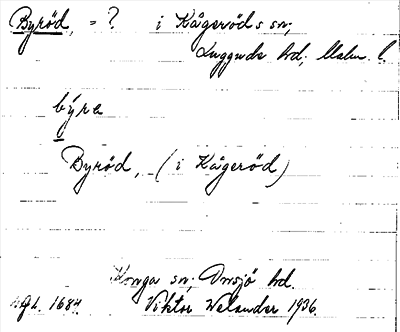 Byröd, = ? i Kågeröds sn;
Luggude hd; Malm. l.
býre
Byröd, (i Kågeröd)
Konga sn; Onsjö hd.
1684. Viktor Welander 1936.